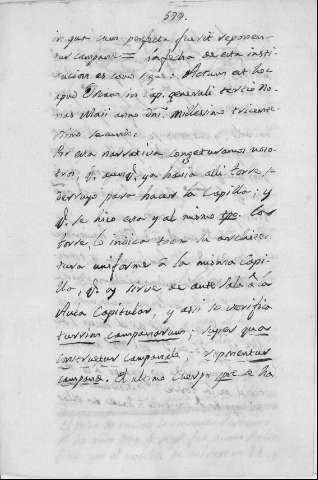 599.
in qua cum perfecta fuerit reponen-
tur campane = la fecha de esta insti-
tucion es como sigue: Actum est hoc
apud Oscam in cap. generali tercio No-
nas Maii anno dni. millesimo tricente-
simo secundo.
Por esta narrativa congeturamos noso-
tros, q. aunq. ya havia alli torre, se
derruyó para hacer la Capilla; y
q. se hizo esta y al mismo tpo. la
torre, lo indica toda su archite-
tura uniforme à la misma Capi-
lla, q. oy sirve de ante sala à la
Aula Capitular, y assi se verifica
turrim campanarum; super qua
construetur campanile, reponentur
campane. El ultimo Cuerpo que se ha